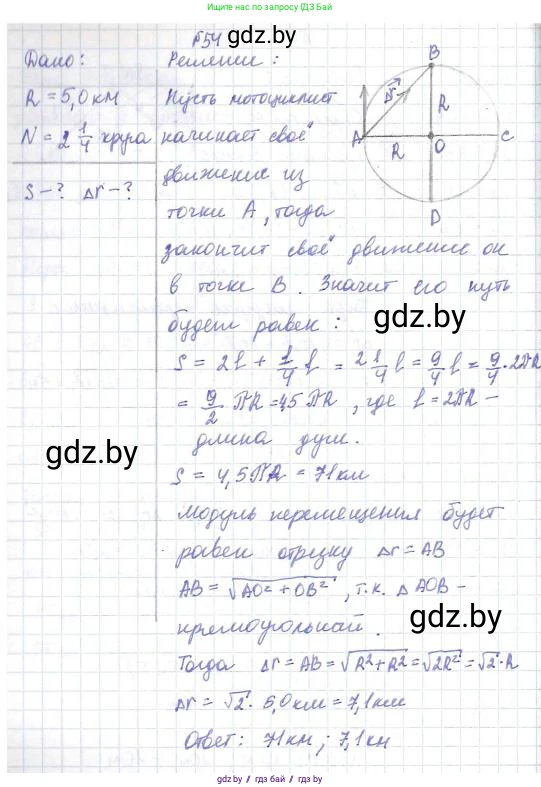 Пишите нам по возникающим ошибкам
№54
gdz.by
Дано:
R = 5,0 км
N = 2 1/4 круга
S - ? Δr - ?
Решение:
Пусть мотоциклист
начинает своё
движение из
точки A, тогда
закончит своё движение он
в точке B. Значит его путь
будет равен:
gdz.by
S = 2l + 1/4 l = 2 1/4 l = 9/4 l = 9/4 · 2πR
= 9/2 πR = 4,5 πR, где l = 2πR -
gdz.by
длина дуги.
S = 4,5πR = 71 км
Модуль перемещения будет
равен отрезку Δr = AB
AB = √AO² + OB², т.к. Δ AOB -
gdz.by
прямоугольный.
Тогда Δr = AB = √R² + R² = √2R² = √2 · R
Δr = √2 · 5,0 км = 7,1 км
Ответ: 71 км; 7,1 км
B
R
A
R
O
C
D
gdz.by / гдз бай / gdz.by